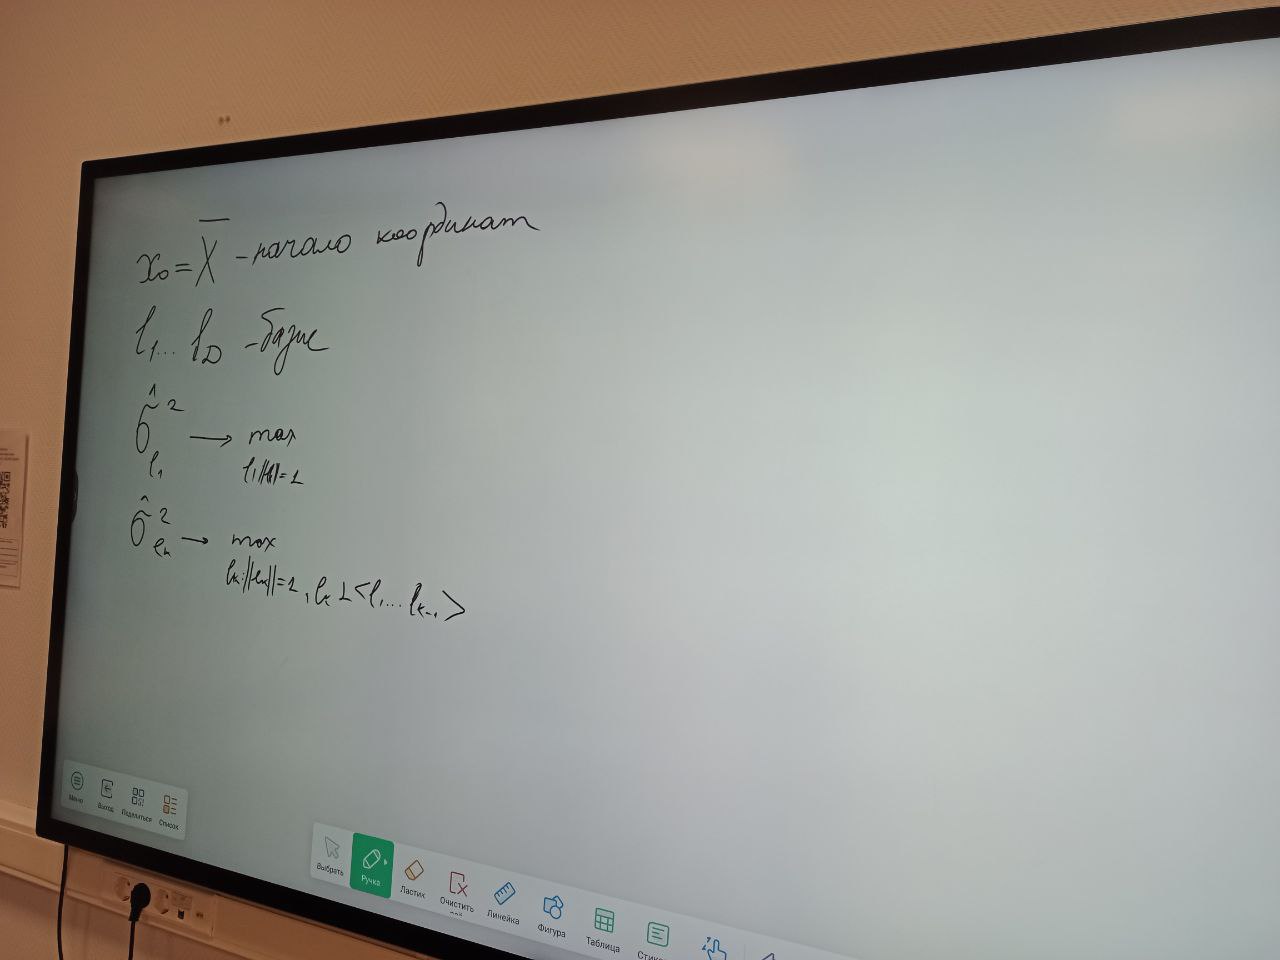 x₀ = X̅ – начало координат
l₁ ... l_D – базис
σ̂²_l₁ → max
l₁ ||l₁|| = 1
σ̂²_lₖ → max
lₖ: ||lₖ|| = 1, lₖ ⊥ <l₁ ... lₖ₋₁>
Меню Выход Поделиться Список
Выбрать Ручка Ластик Очистить Линейка Фигура Таблица